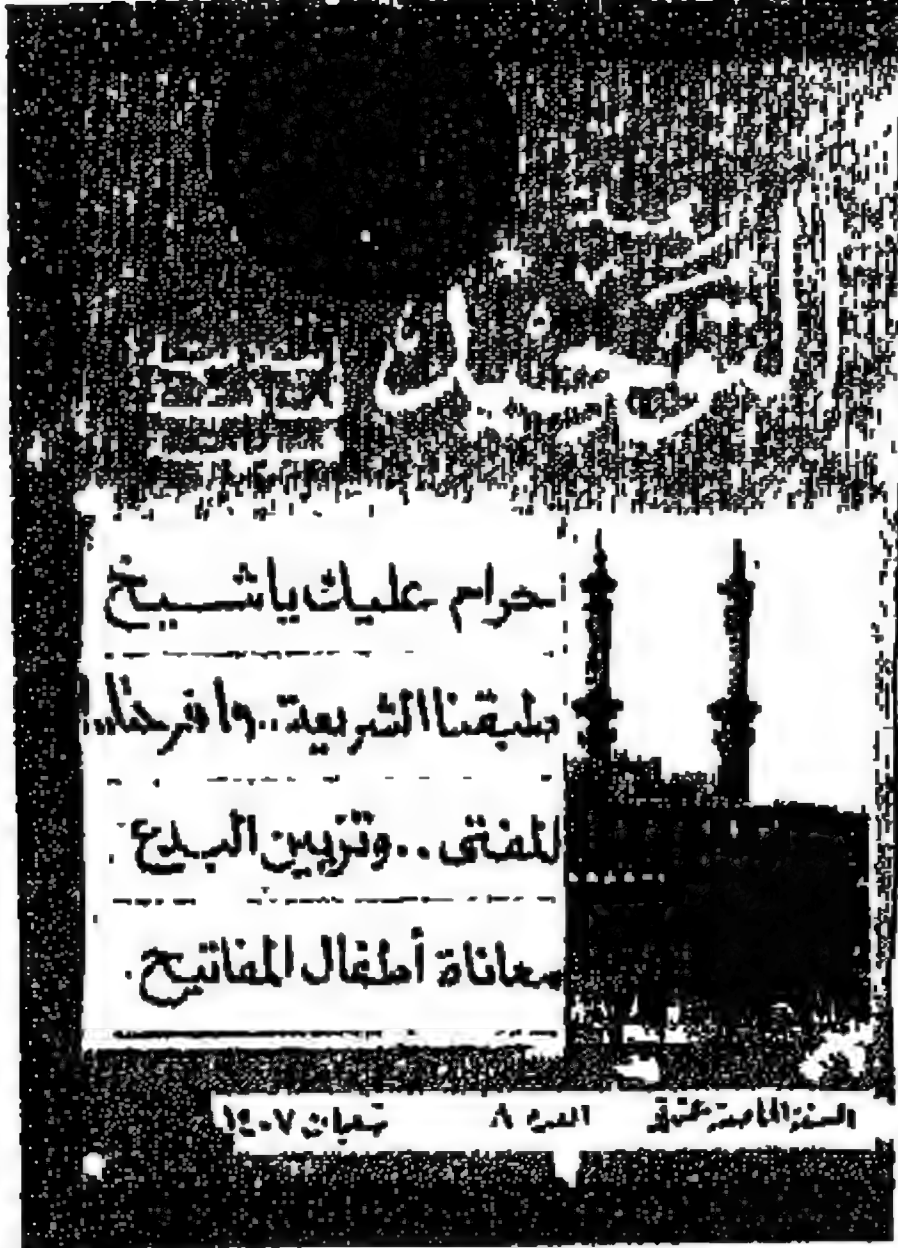 التوحيد
حرام عليك يا شيخ
طبقنا الشريعة.. وافرحتاه..!
المفتى.. وتزيين البدع.
معاناة أطفال المفاتيح.
السنة الخامسة عشرة العدد ٨ شعبان ١٤٠٧